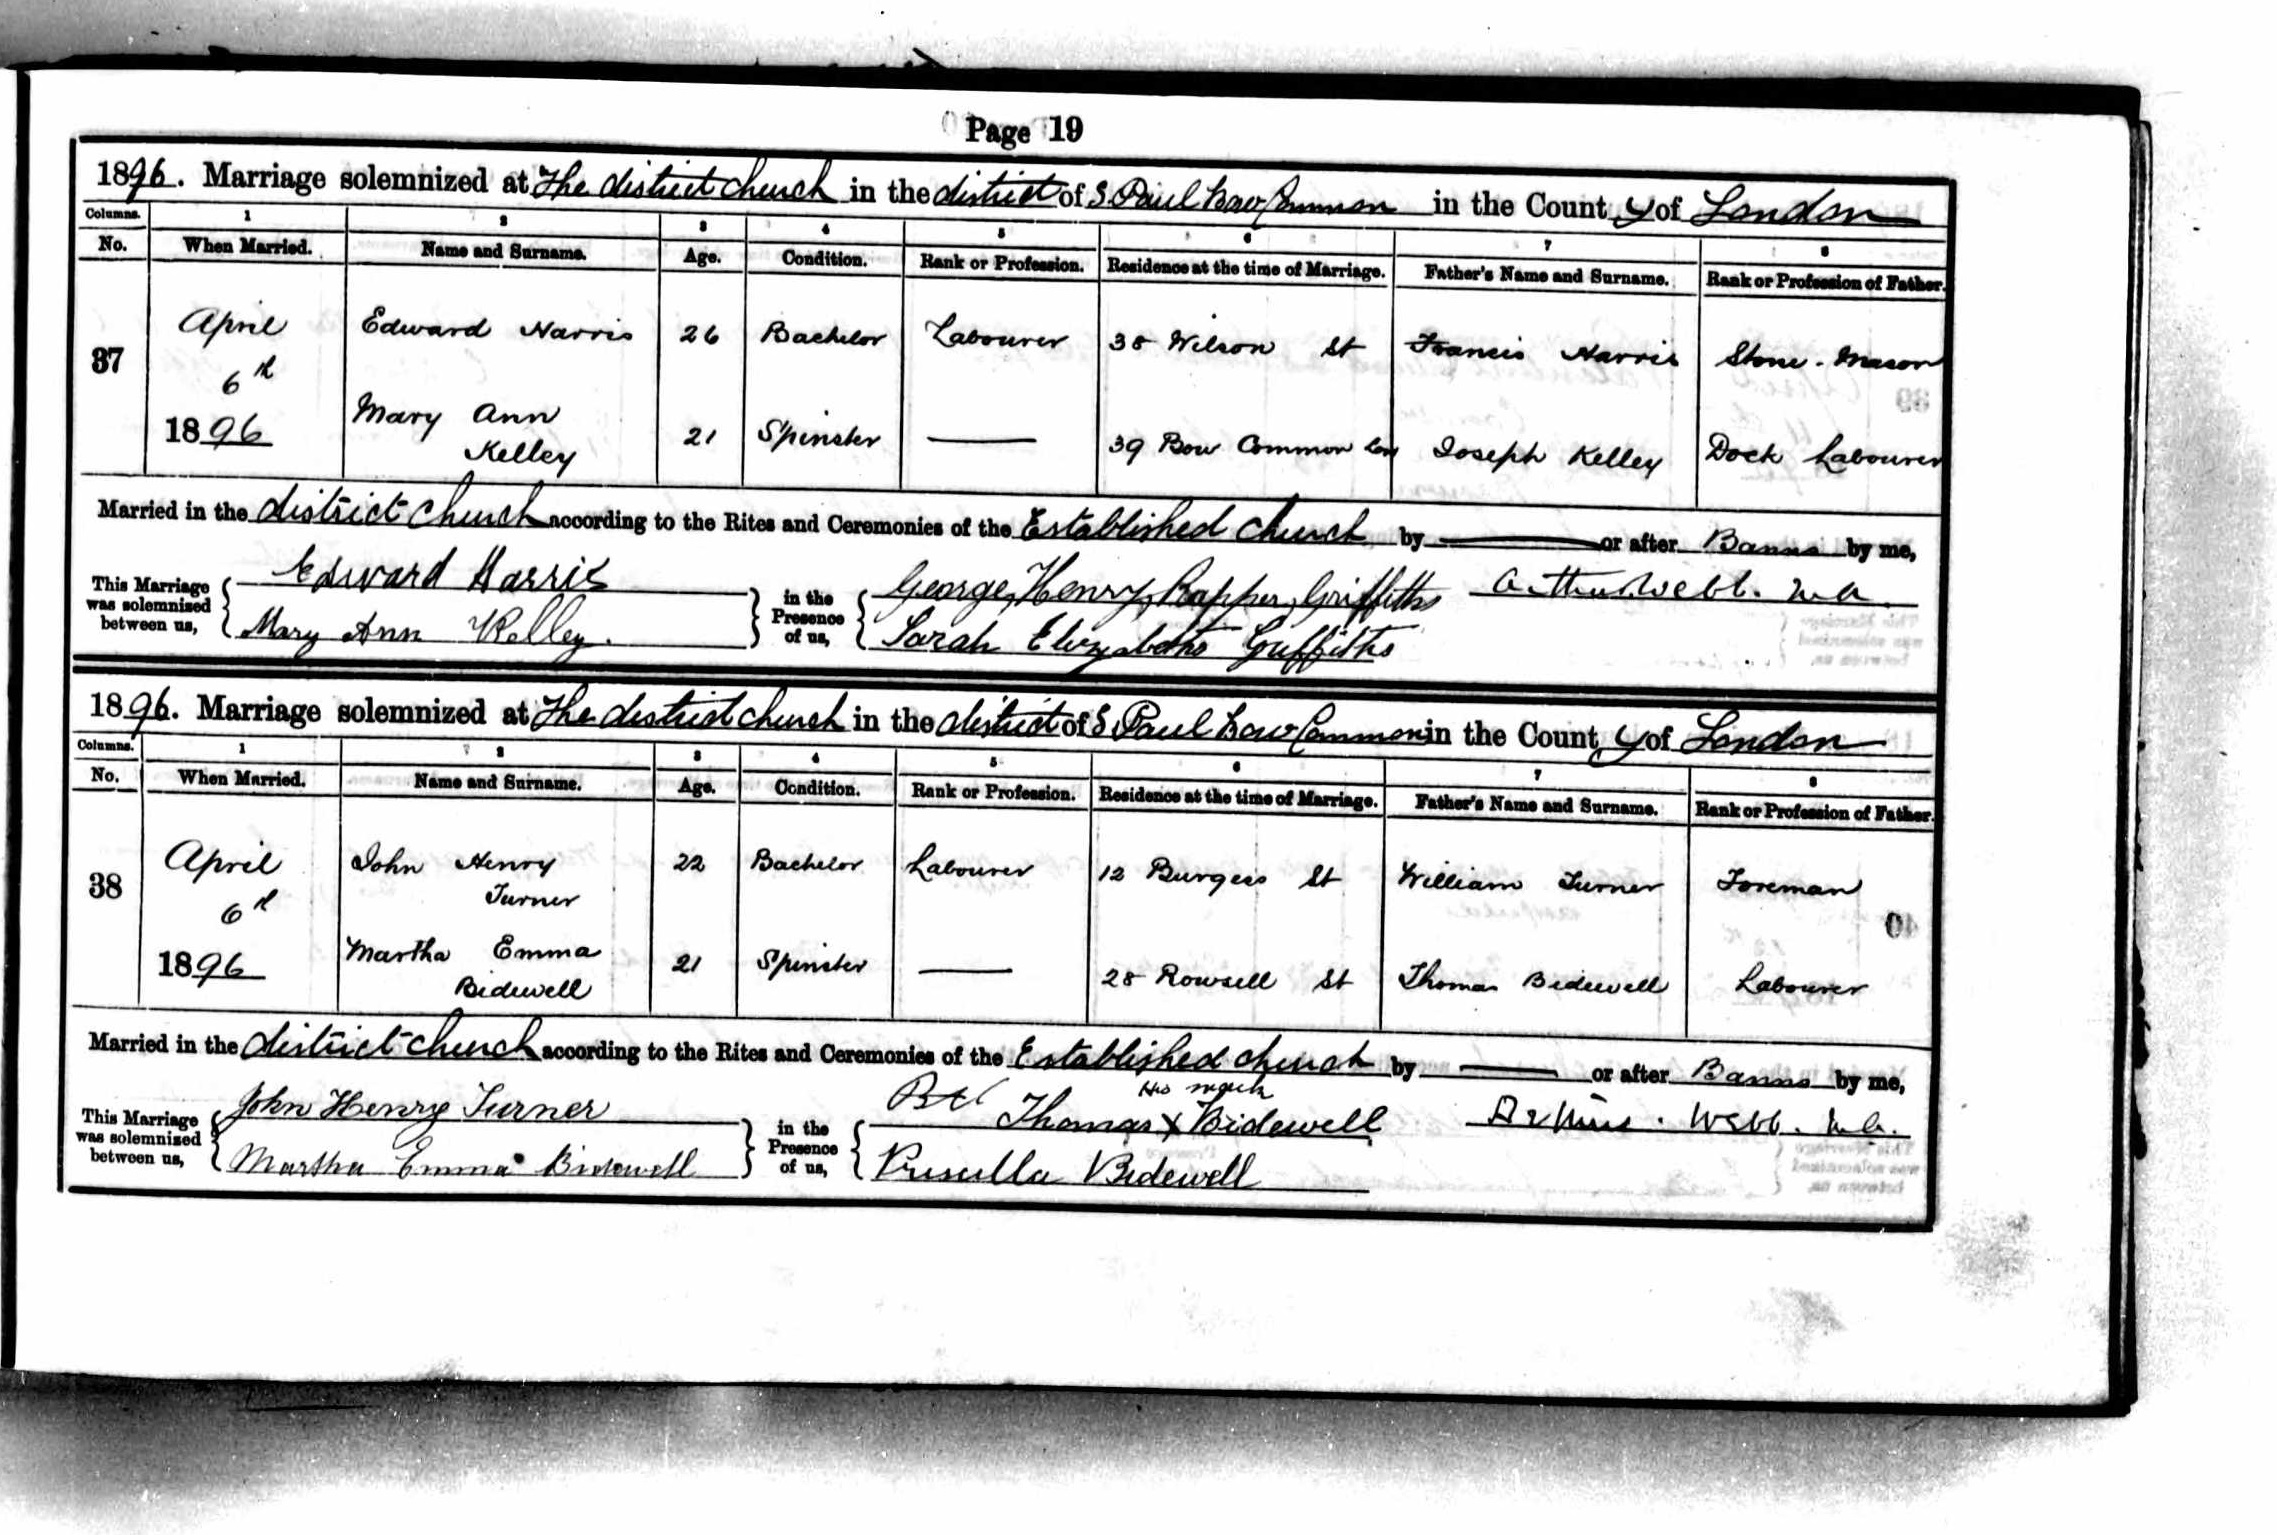 Page 19
1896. Marriage solemnized at The district church in the district of S. Paul Bow Common in the County of London
Columns. 1 2 3 4 5 6 7 8
No. When Married. Name and Surname. Age. Condition. Rank or Profession. Residence at the time of Marriage. Father's Name and Surname. Rank or Profession of Father.
37 April 6th 1896 Edward Harris 26 Bachelor Labourer 38 Wilson St Francis Harris Stone-Mason
Mary Ann Kelley 21 Spinster — 39 Bow Common Joseph Kelley Dock Labourer
Married in the district church according to the Rites and Ceremonies of the Established Church by — or after Banns by me,
This Marriage was solemnized between us, Edward Harris in the Presence of us, George Henry Griffiths Arthur Webb. M.A.
Mary Ann Kelley. Sarah Elizabeth Griffiths
1896. Marriage solemnized at The district church in the district of S. Paul Bow Common in the County of London
Columns. 1 2 3 4 5 6 7 8
No. When Married. Name and Surname. Age. Condition. Rank or Profession. Residence at the time of Marriage. Father's Name and Surname. Rank or Profession of Father.
38 April 6th 1896 John Henry Turner 22 Bachelor Labourer 12 Burgess St William Turner Foreman
Martha Emma Bidewell 21 Spinster — 28 Rowsell St Thomas Bidewell Labourer
Married in the district church according to the Rites and Ceremonies of the Established Church by — or after Banns by me,
This Marriage was solemnized between us, John Henry Turner in the Presence of us, Thomas X Bidewell His mark Arthur. Webb. M.A.
Martha Emma Bidewell Priscilla Bidewell